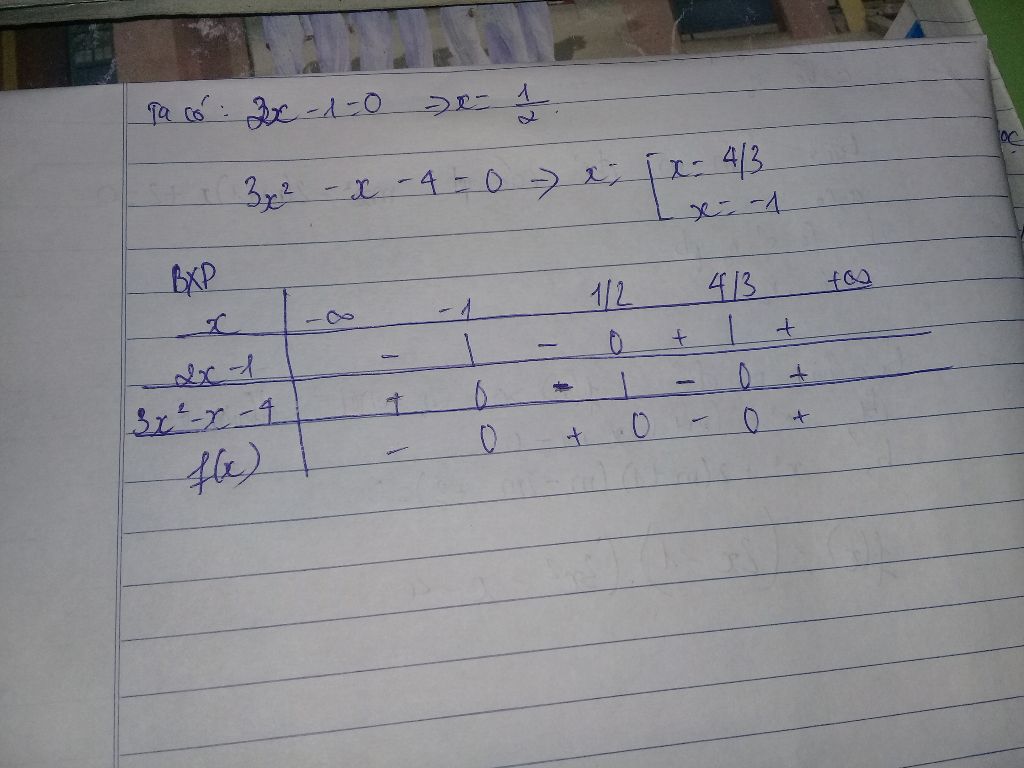 Ta có: 2x - 1 = 0 => x = 1/2.
3x² - x - 4 = 0 -> x = [ x = 4/3
x = -1
BXP
x -∞ -1 1/2 4/3 +∞
2x - 1 - | - 0 + | +
3x² - x - 4 + 0 - | - 0 +
f(x) - 0 + 0 - 0 +